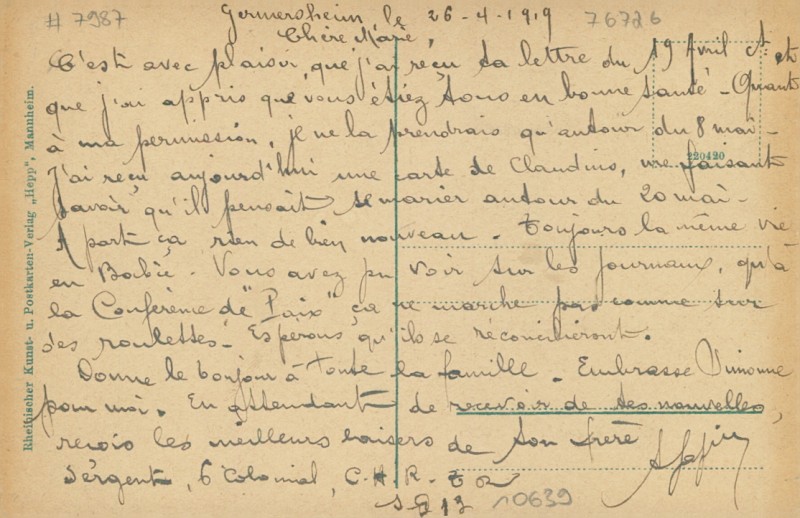 # 7987
Germersheim, le 26-4-1919
76726
Chère Marie,
C'est avec plaisir que j'ai reçu ta lettre du 19 Avril ct et
que j'ai appris que vous étiez tous en bonne santé - Quant
à ma permission, je ne la prendrais qu'autour du 8 mai -
J'ai reçu aujourd'hui une carte de Claudius, me faisant
savoir qu'il pensait se marier autour du 20 mai -
A part ça rien de bien nouveau. Toujours la même vie
en . Vous avez pu voir sur les journaux, qu'à
la Conférence de "Paix" ça ne marche pas comme sur
des roulettes - Espérons qu'ils se réconcilieront.
Donne le bonjour à toute la famille. Embrasse
pour moi. En attendant de recevoir de tes nouvelles,
reçois les meilleurs baisers de ton frère
Sergent, 6 Colonial, C.H.R.
10639
220420
Rheinischer Kunst- u. Postkarten-Verlag „Hepp", Mannheim.